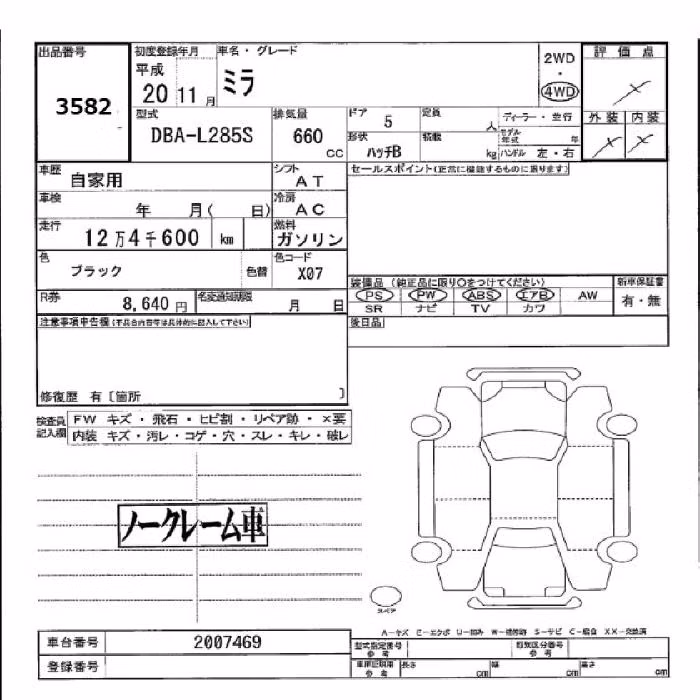 出品番号
3582
初度登録年月
平成
20 11 月
車名・グレード
ミラ
2WD
・
4WD
評価点
外装 内装
型式
DBA-L285S
排気量
660
CC
ドア 5
定員
人
ディーラー・並行
モデル
年式
年
形状
ハッチB
積載
kg
ハンドル 左・右
車歴
自家用
シフト
AT
セールスポイント(正常に機能するものに限ります)
車検
年 月( 日)
冷房
AC
走行
12万4千600 km
燃料
ガソリン
色
ブラック
色替
色コード
X07
装備品(純正品に限り○をつけてください)
PS PW ABS エアB AW
SR ナビ TV カワ
新車保証書
有・無
R券
8,640 円
名変通知期限
月 日
後日品
注意事項申告欄(不具合内容等は具体的に記入して下さい)
修復歴 有〔箇所 〕
検査員
記入欄
FW キズ・飛石・ヒビ割・リペア跡・×要
内装 キズ・汚レ・コゲ・穴・スレ・キレ・破レ
ノークレーム車
スペア
A-キズ E-エクボ U-凹み W-補修跡 S-サビ C-腐食 XX-交換済
車台番号
2007469
登録番号
型式指定番号
参考
類別区分番号
参考
車庫証明用
参考
長さ
cm
幅
cm
高さ
cm